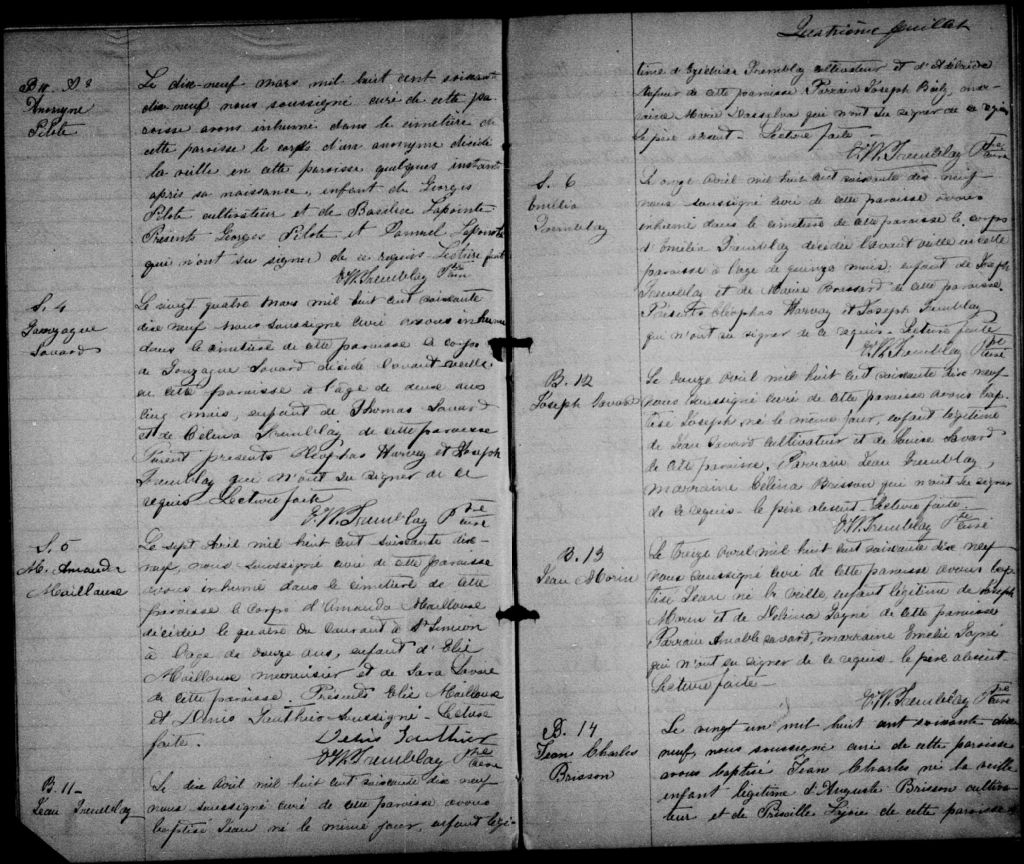 Anonyme
Pilote
Le dix-neuf mars mil huit cent soixante
dix-neuf nous soussigné curé de cette pa-
roisse avons inhumé dans le cimetière de
cette paroisse le corps d'un anonyme décédé
la veille en cette paroisse quelques instant
après sa naissance, enfant de Georges
Pilote cultivateur et de Basilice Lapointe
Présents Georges Pilote et Samuel Lapointe
qui n'ont su signer de ce requis Lecture faite
E.W. Tremblay Ptre
Curé
S. 4
Gonzague
Savard
Le vingt quatre Mars mil huit cent soixante
dix neuf nous soussigné curé avons inhumé
dans le cimetière de cette paroisse le corps
de Gonzague Savard décédé l'avant veille
en cette paroisse à l'âge de deux ans
cinq mois, enfant de Thomas Savard
et de Célina Tremblay, de cette paroisse
Furent presents Cléophas Harvey et Joseph
Tremblay qui n'ont su signer de ce
requis - Lecture faite
E.W. Tremblay Ptre
curé
S. 5
M. Amanda
Maillouse
Le sept Avril mil huit cent soixante dix-
neuf, nous soussigné curé de cette paroisse
avons inhumé dans le cimetière de cette
paroisse le corps d'Amanda Maillouse
décédée le quatre du courant à St Siméon
à l'age de douze ans, enfant d'Elie
Maillouse menuisier et de Sara Savard
de cette paroisse. Présents Elie Maillouse
et Denis Gauthier soussigné - Lecture
faite.
Denis Gauthier
E.W. Tremblay Ptre
Curé
B. 11 -
Jean Tremblay
Le dix Avril mil huit cent soixante dix neuf
nous soussigné curé de cette paroisse avons
baptisé Jean né le même jour, enfant légi-
Quatrième feuillet
time d'Ezéchias Tremblay cultivateur et d'
de cette paroisse Parrain Joseph
Marie Dassylva qui n'ont su signer de ce requis
le père absent - Lecture faite -
E.W. Tremblay Ptre
Curé
S. 6
Emélia
Tremblay
Le onze Avril mil huit cent soixante dix neuf
nous soussigné curé de cette paroisse avons
inhumé dans le cimetière de cette paroisse le corps
d'Emélia Tremblay décédée l'avant veille en cette
paroisse à l'age de quinze mois, enfant de Joseph
Tremblay et de Marie Brassard de cette paroisse.
Présents Cléophas Harvay et Joseph Tremblay
qui n'ont su signer de ce requis - Lecture faite
E.W. Tremblay Ptre
Curé
B. 12
Joseph Savard
Le douze Avril mil huit cent soixante dix neuf
nous soussigné curé de cette paroisse avons bap-
tisé Joseph né le même jour, enfant légitime
de Jean Savard cultivateur et de Louise Savard
de cette paroisse. Parrain Jean Tremblay,
marraine Célina Brisson qui n'ont su signer
de ce requis - le père absent - Lecture faite -
E.W. Tremblay Ptre
curé
B. 13
Jean Morin
Le treize Avril mil huit cent soixante dix neuf
nous soussigné curé de cette paroisse avons bap-
tisé Jean né la veille, enfant légitime de Joseph
Morin et de Délina Gagné de cette paroisse
Parrain Amable Savard, marraine Emélie Gagné
qui n'ont su signer de ce requis - le père absent -
Lecture faite -
E.W. Tremblay Ptre
Curé
B. 14
Jean Charles
Brisson
Le vingt un mil huit cent soixante dix
neuf, nous soussigné curé de cette paroisse
avons baptisé Jean Charles né la veille
enfant légitime d'Auguste Brisson cultiva-
teur et de de cette paroisse